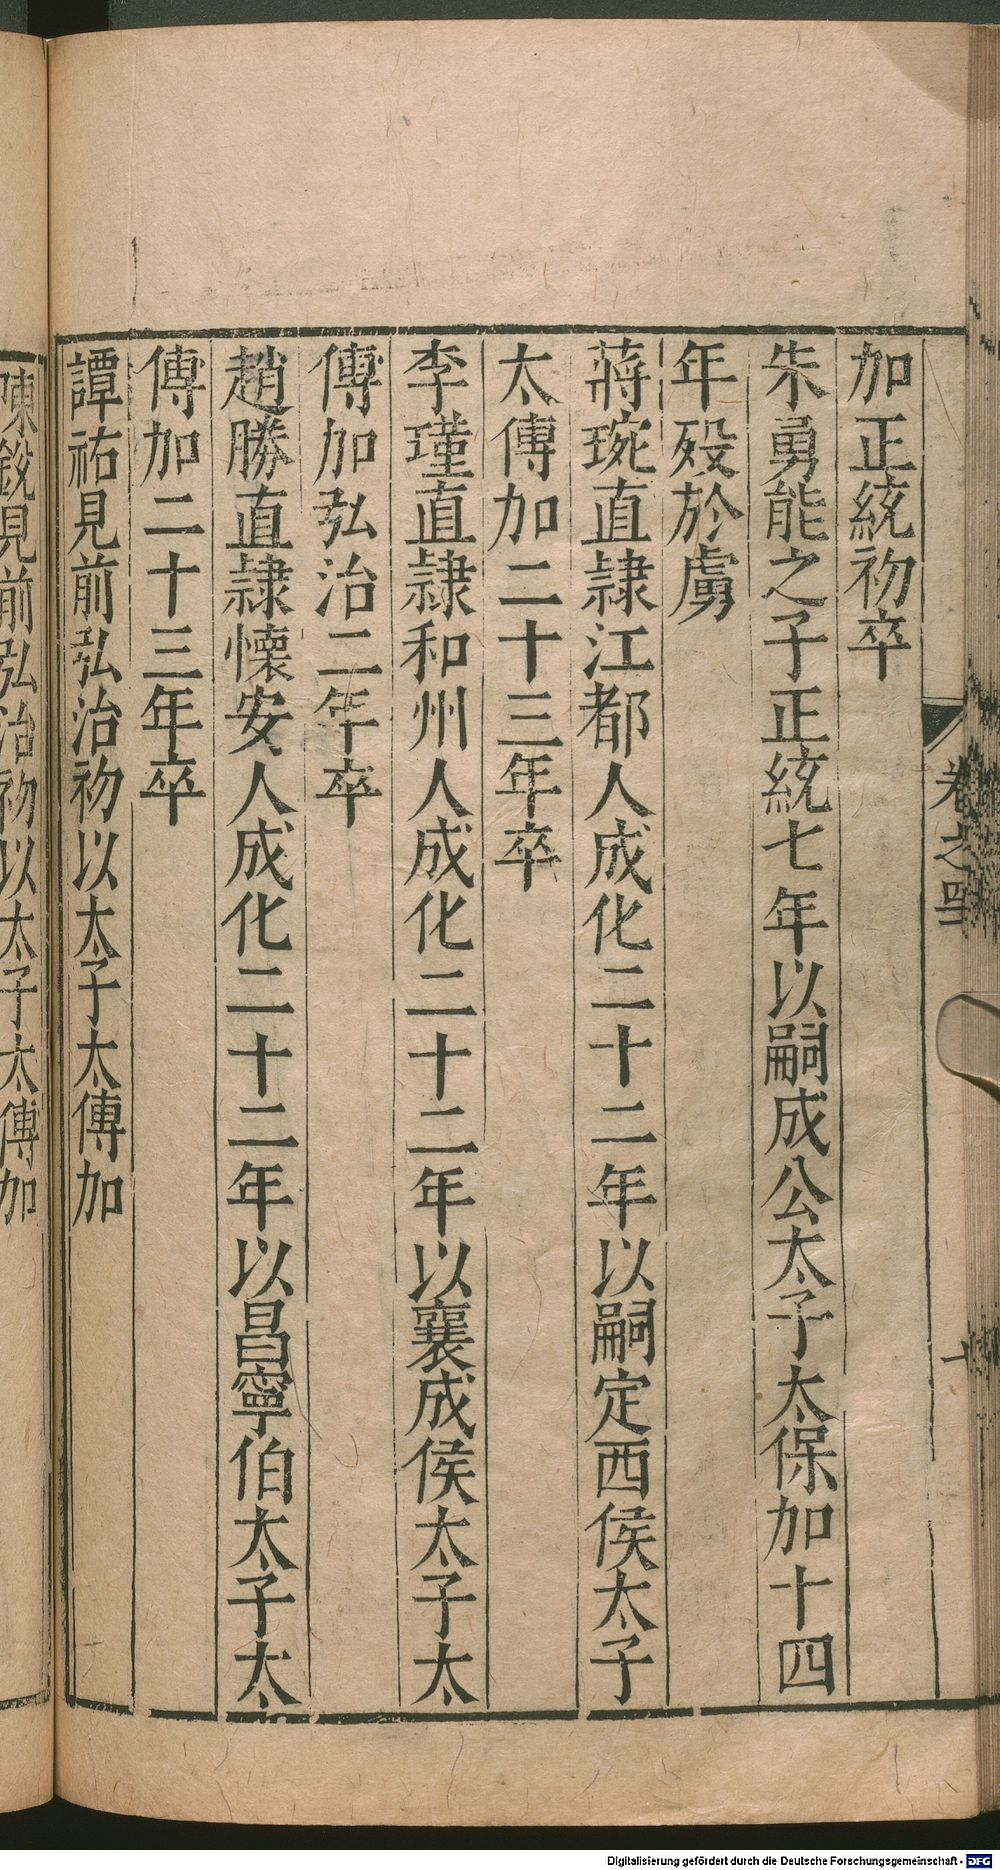 卷之四
十
加正統初卒
朱勇能之子正統七年以嗣成公太子太保加十四
年歿於虜
蔣琬直隷江都人成化二十二年以嗣定西侯太子
太傅加二十三年卒
李瑾直隷和州人成化二十二年以襄成侯太子太
傅加弘治二年卒
趙勝直隷懷安人成化二十二年以昌寧伯太子太
傅加二十三年卒
譚祐見前弘治初以太子太傅加
陳銳見前弘治初以太子太傅加
Digitalisierung gefördert durch die Deutsche Forschungsgemeinschaft - DFG